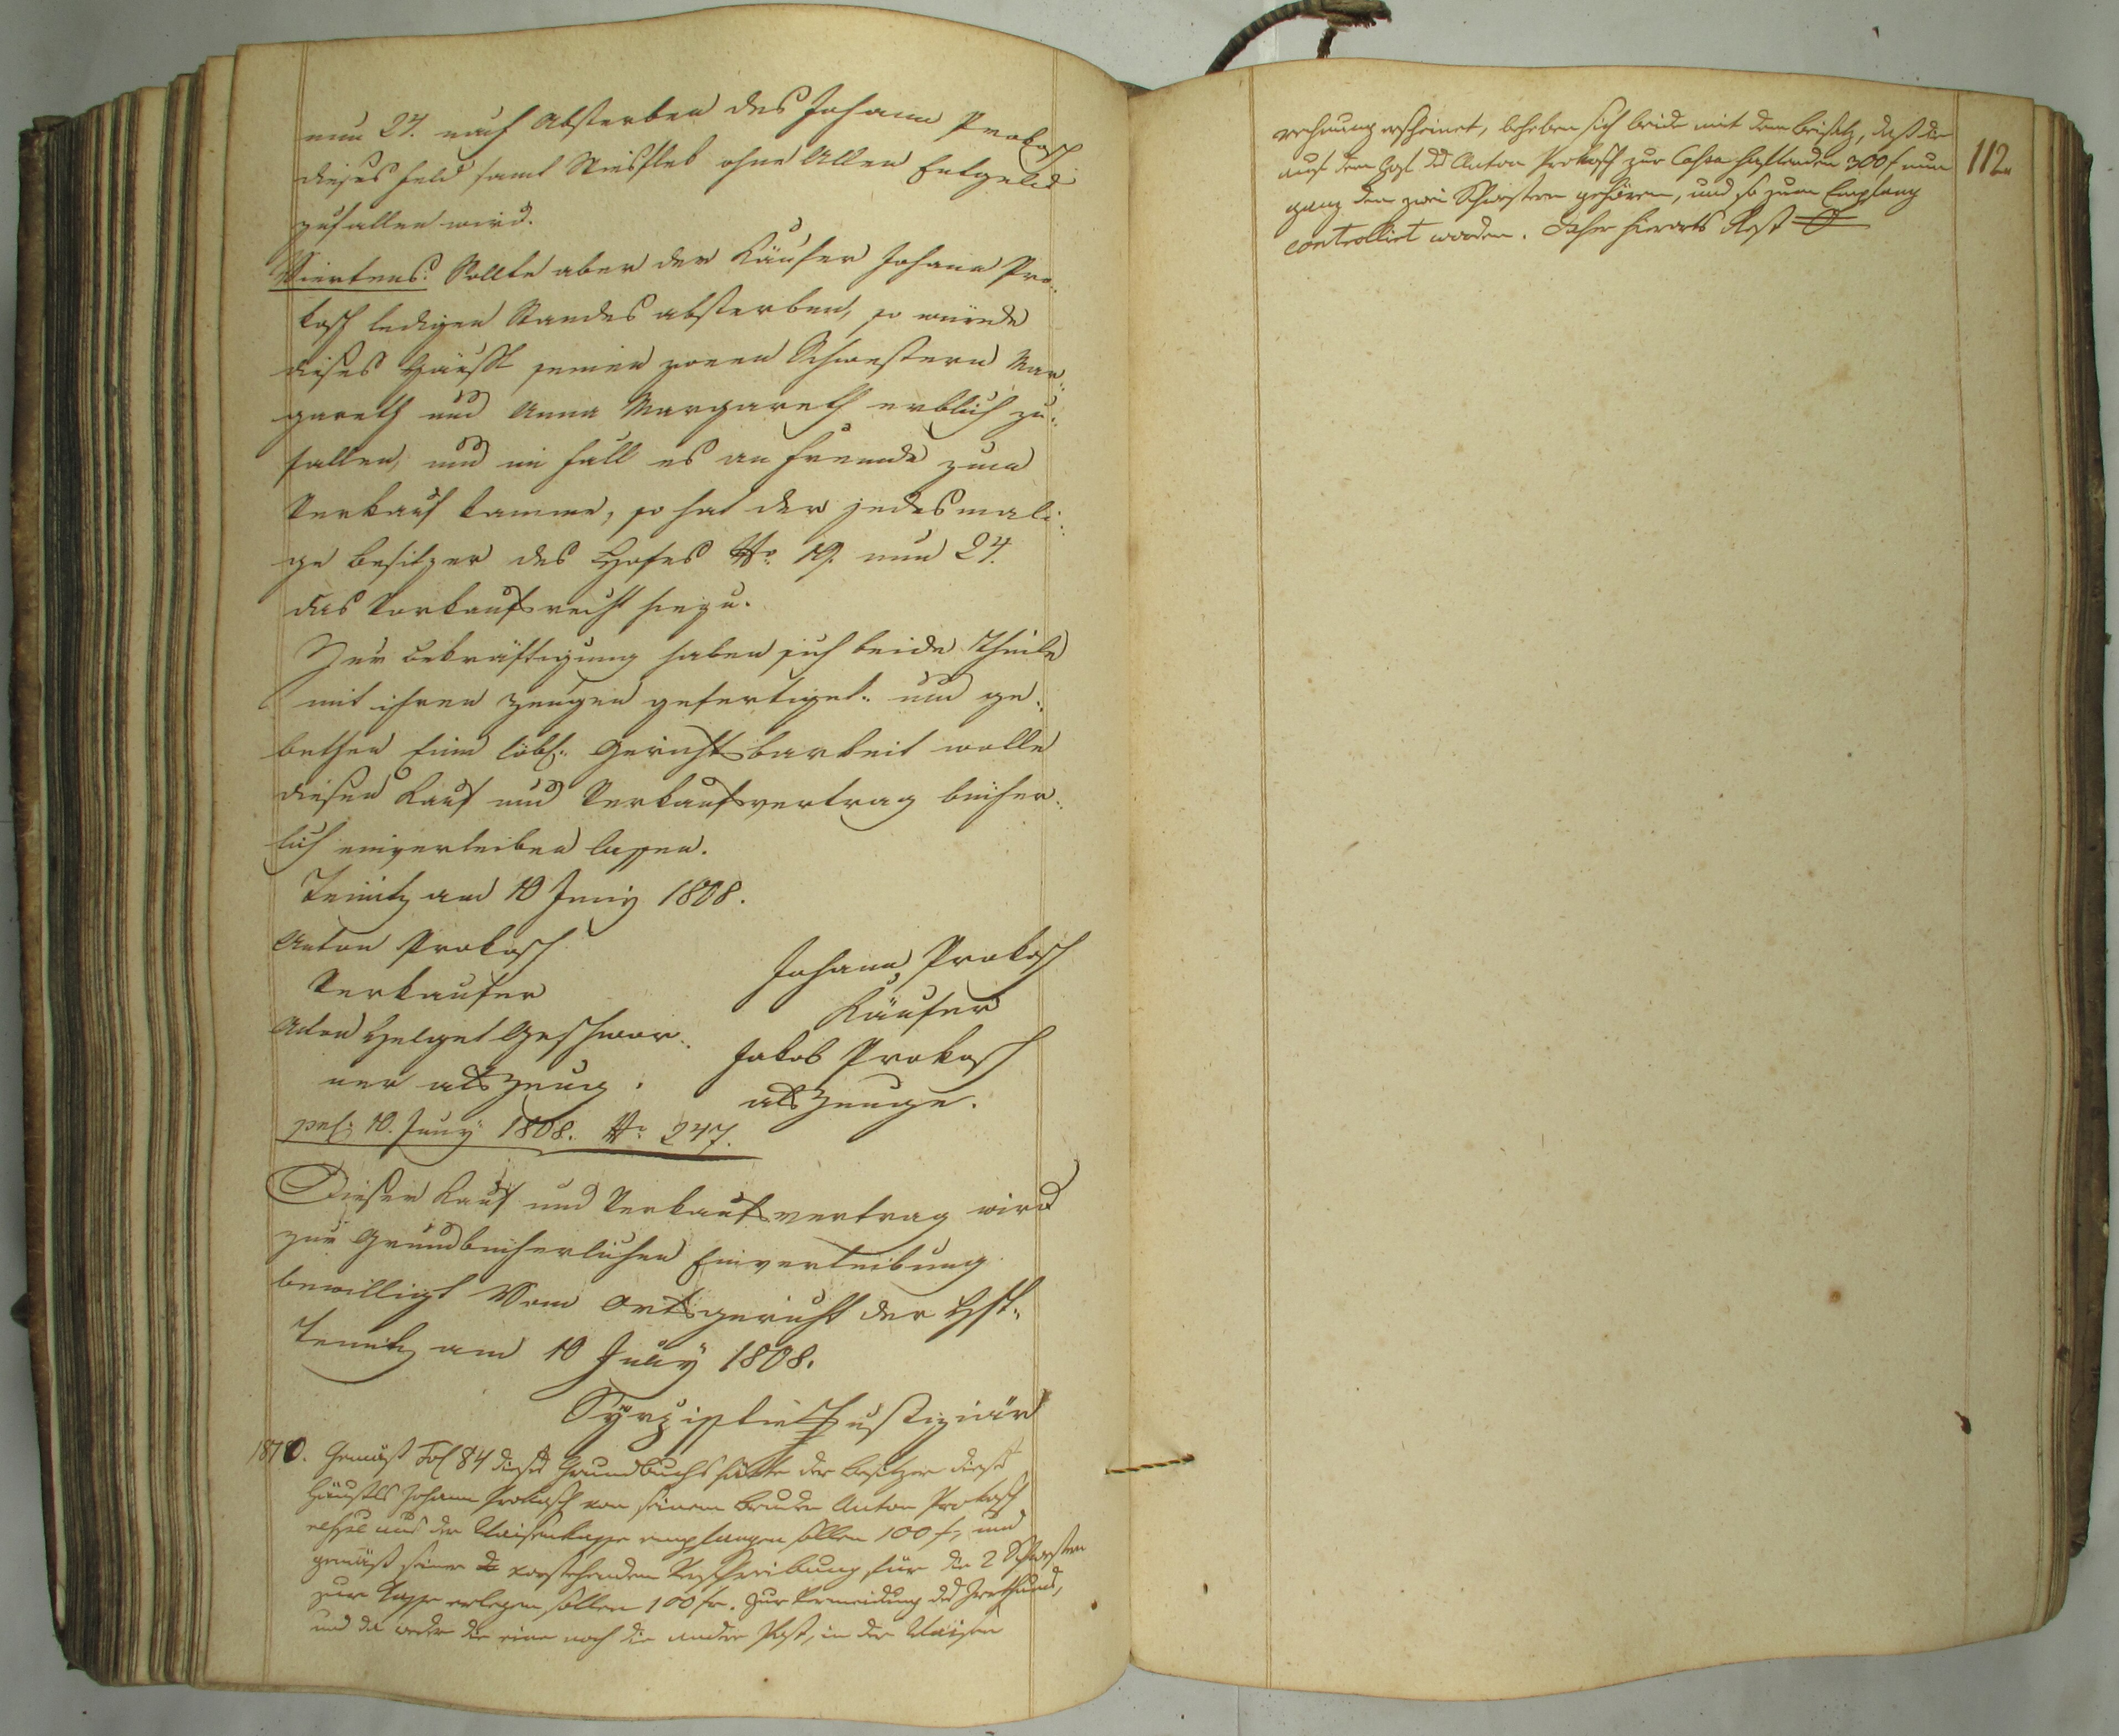 nun 24. nach Absterben des Johann Prokosch
dieses Feld samt ohne Allen Entgeld
zufallen wird.
Viertens: Sollte aber der Käufer Johann Pro-
kosch ledigen Standes absterben, so würde
dieses Häusl seinen zween Schwestern Mar-
gareth und Anna Margareth erblich zu-
fallen, und im fall es an fremde zum
Verkauf kamme, so hat der jedesmali-
ge Besitzer des Hofes No. 19. nun 24.
das Vorkaufsrecht hiezu.
Zur Bekräftigung haben sich beide Theile
mit ihren Zeugen gefertiget und ge-
bethen Eine löbl: Gerichtsbarkeit wolle
diesen Kauf und Verkaufsvertrag bücher-
lich einverleiben lassen.
am 10 Juny 1808.
Anton Prokosch
Verkaufer
Johann Prokosch
Käufer
Adam Helget Geschwor-
ner als Zeug.
Jakob Prokosch
als Zeuge.
pns: 10. Juny 1808. No. 247.
Dieser Kauf und Verkaufsvertrag wird
zur Grundbücherlichen Einverleibung
bewilligt Vom Ortsgericht der Hft.
am 10 July 1808.
Justiziär
1810. Gemäß Fol 84 dieses Grundbuchs hätte der Besitzer dieses
Häusls Johann Prokosch von seinem Bruder Anton Prokosch
aus der Waisenkasse empfangen sollen 100 f, und
gemäß seiner vorstehenden Verschreibung für die 2 Schwestern
zur Kasse erlegen sollen 100 f. Zur Vermeidung des Irrthums,
und da weder die eine noch die andere Post, in der Waisen
rechnung erscheinet, beheben sich beide mit dem Beisatz, daß die
auf dem Hof des Anton Prokosch zur Cassa haftenden 300 f nun
ganz den zwei Schwestern gehören, und so zum Empfang
controllirt worden. Daher hierorts Rest
112